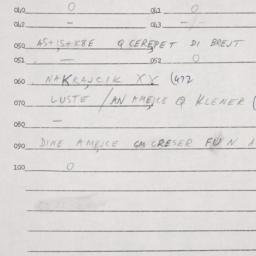 040 0 041 0
042 - 043 -/-
050 AS+IS+SBE Q CEREPET DI BREJT
051 - 052 0
060 NAKRAJCIK XY (472
070 LUSTE / AN AMEJCE Q KLENER (
080 -
090 DINE AMEJCE GRESER FUN A
100 0